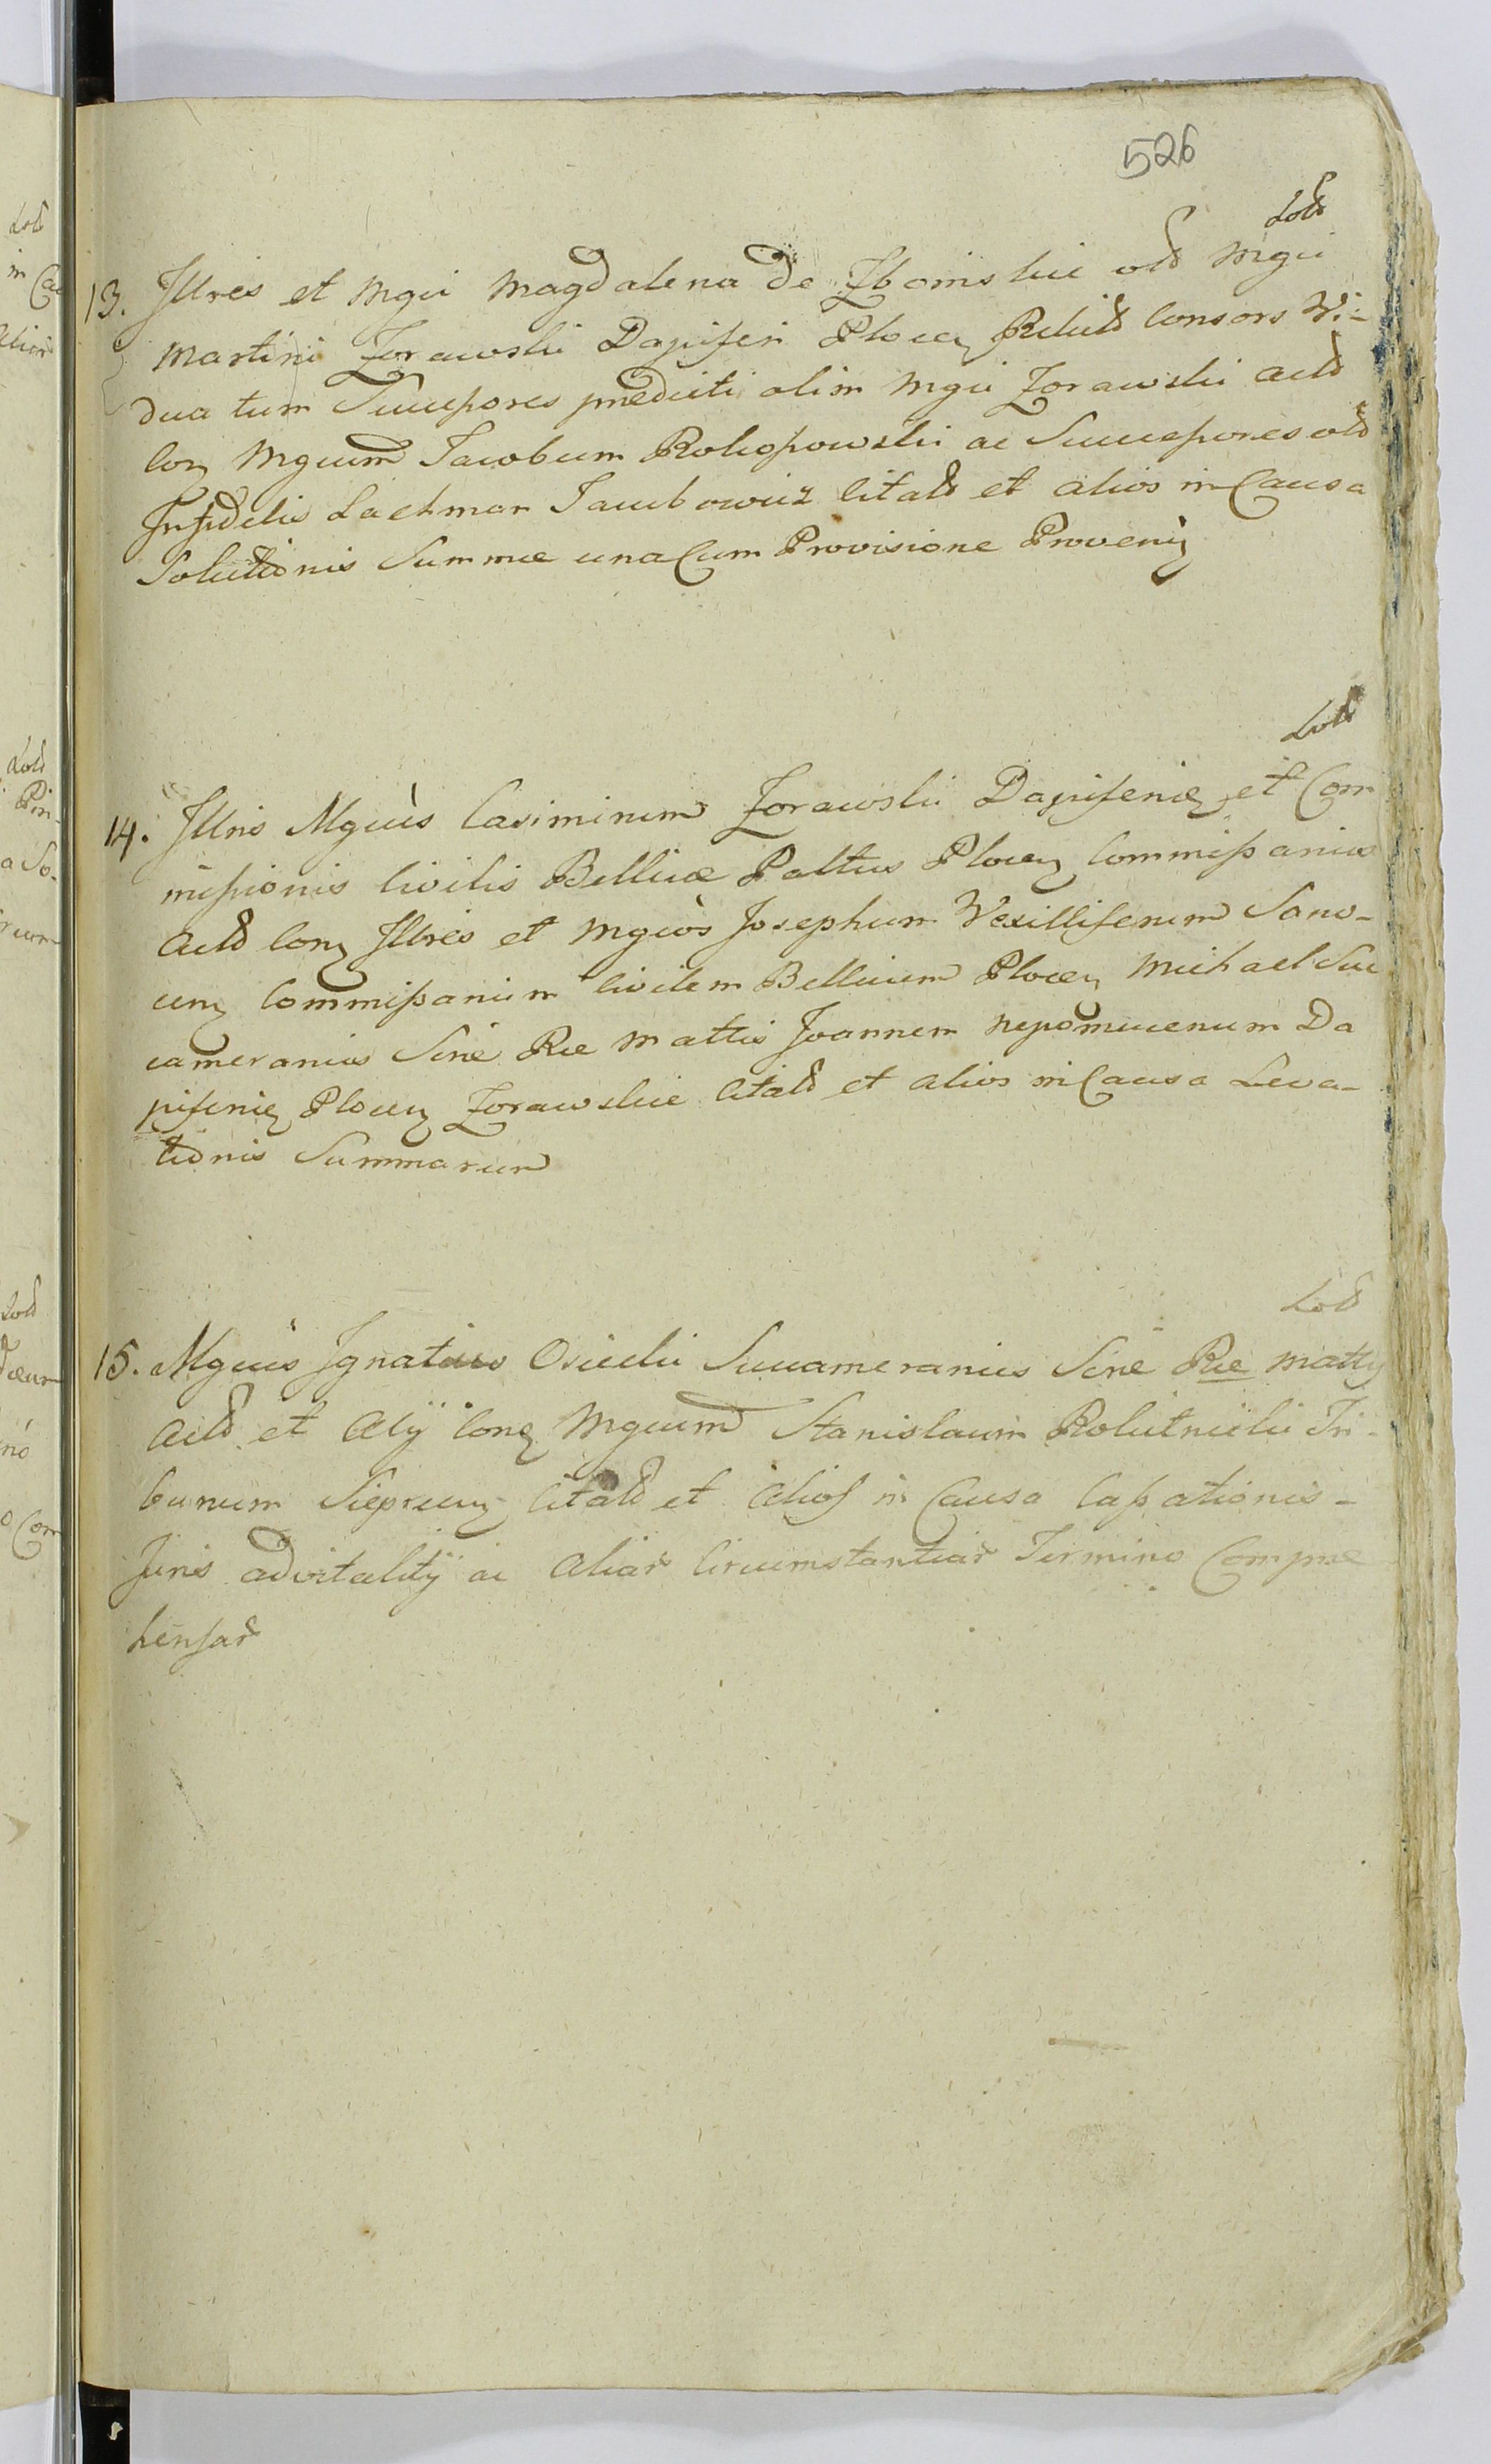 526
Lott
13. Illres et Mgci Magdalena de Zboinskie olt Mgci
Martini Zorawski Dapiferi Plocen Relict Consors Vi-
dua tum Successores praedicti olim Mgci Zorawski Act
Con Mgcum Jacobum Rokossowski ac Successores olt
Infidelis Lachman Jacubowicz Citat et alios in Causa
Solutionis Summae una Cum Provisione Proven
Lott
14. Illris Mgcus Casimirum Zorawski Dapiferid et Com
missionis Civilis Bellicae Paltus Plocen Commissarius
Act Con Illres et Mgcos Josephum Vexilliferum Sano-
cen Commissarium Civilem Bellicum Plocen Michael Suc
camerarius Sirae Rae Mattis Joannem Nepomucenum Da
piferid Plocen Zorawskie Citat et alios in Causa Leva-
tionis Summarum
Lott
15. Mgcus Ignatius Osiecki Succamerarius Sirae Rae Mattis
Act et Alÿ Con Mgcum Stanislaum Rokitnicki Tri-
bunum Sieprcen Citat et alios in Causa Cassationis -
Juris advitalitÿ ac Aliar Circumstantiar Termino Compre
hensar